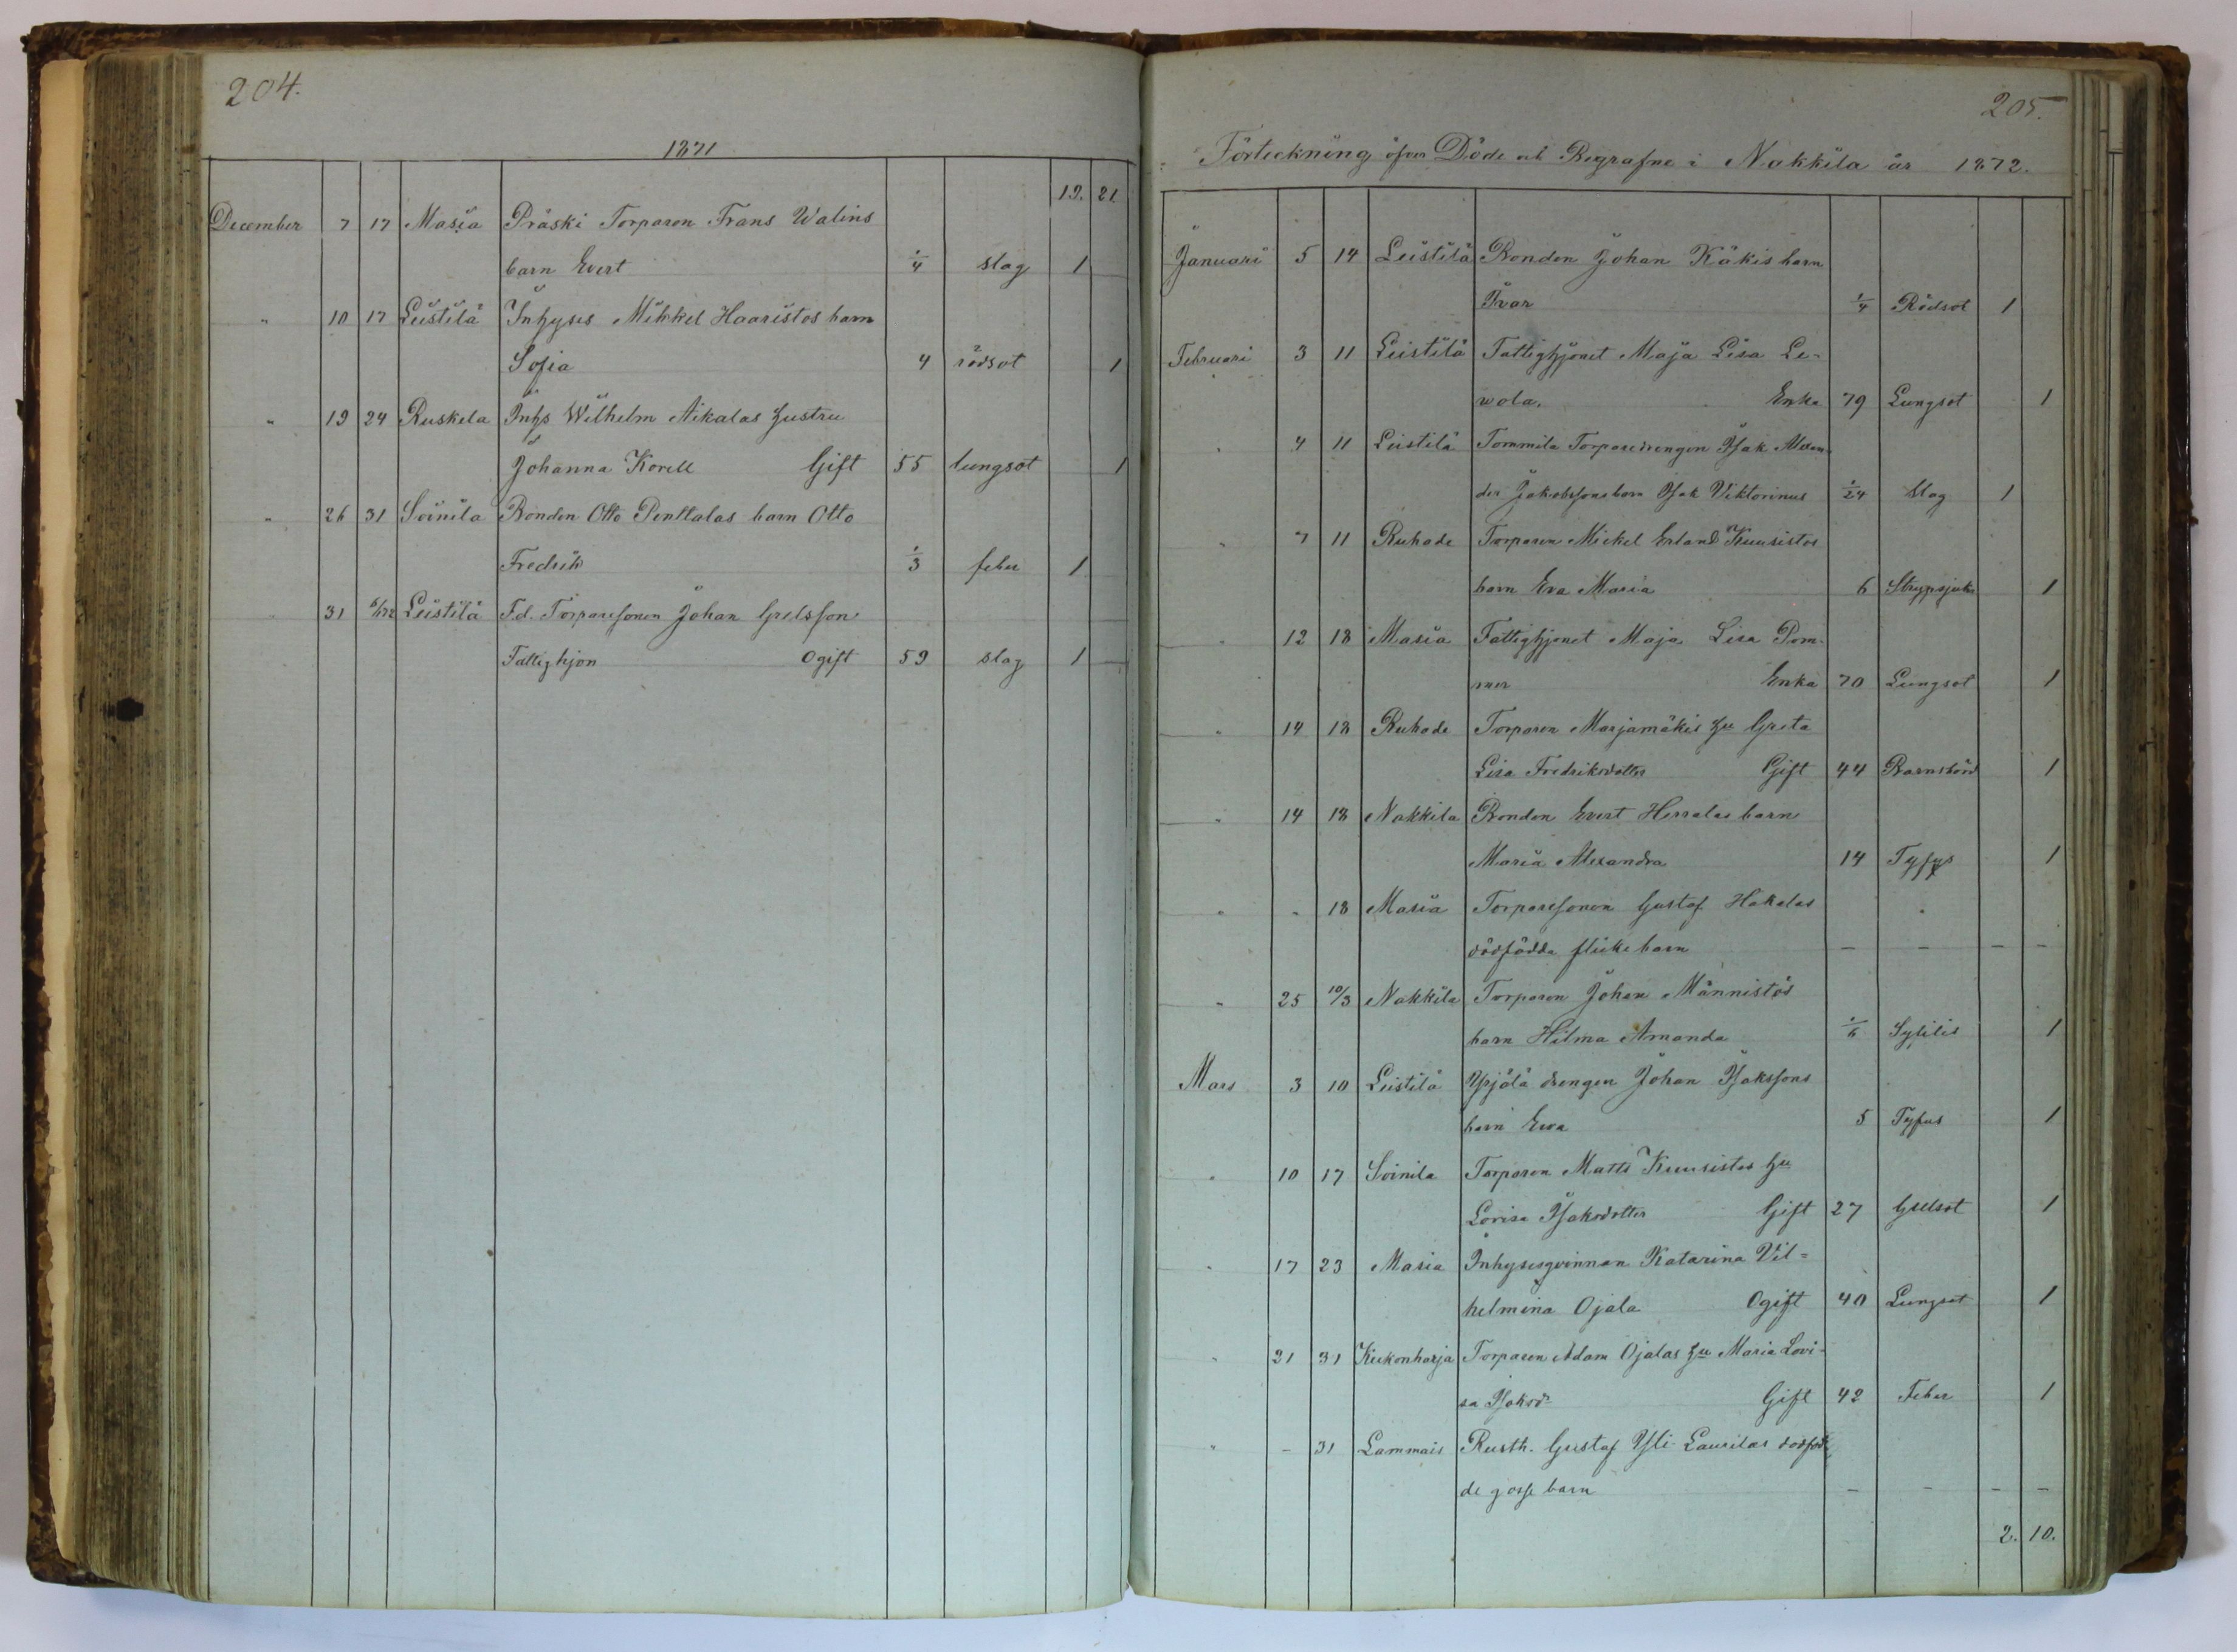 204.
1871
19. 21
December 7 17 Masia Präski Torparen Frans Walins
barn Evert 1/4 slag 1
" 10 17 Leistilä Inhyses Mikkel Haaristos barn
Sofia 4 rödsot 1
" 19 24 Ruskela Inhs Wilhelm Aikalas hustru
Johanna Korell Gift 55 lungsot 1
" 26 31 Soinila Bonden Otto Penttalas barn Otto
Fredrik 1/3 feber 1
" 31 6/1 72 Leistilä F.d. Torparesonen Johan Grelsson
Fattighjon Ogift 59 slag 1
205.
Förteckning öfver Döde och Begrafne i Nakkila år 1872.
Januari 5 14 Leistilä Bonden Johan Käkis barn
Ivar 1/4 Rödsot 1
Februari 3 11 Leistilä Fattighjonet Maja Lisa Le-
wola. Enka 79 Lungsot 1
" 4 11 Leistilä Tommila Torparedrengen Isak Alexan-
der Jakobssons barn Isak Viktorinus 1/24 Slag 1
" 7 11 Ruhade Torparen Mickel Erland Kuusistos
barn Eva Maria 6 Strypsjuka 1
" 12 18 Masia Fattighjonet Maja Lisa Pom-
mer Enka 70 Lungsot 1
" 14 18 Ruhade Torparen Marjamäkis hu Greta
Lisa Fredriksdotter Gift 44 Barnsbörd 1
" 14 18 Nakkila Bonden Evert Herralas barn
Maria Alexandra 14 Tyfus 1
" " 18 Masia Torparesonen Gustaf Hakalas "
dödfödda flicke barn — — — —
" 25 10/3 Nakkila Torparen Johan Männistös
barn Hilma Amanda 1/6 Syfilis 1
Mars 3 10 Leistilä drengen Johan Isakssons
barn Ewa 5 Tyfus 1
" 10 17 Soinila Torparen Matts Kuusistos hu
Lovisa Isaksdotter Gift 27 Gulsot 1
" 17 23 Masia Inhysesqvinnan Katarina Vil=
helmina Ojala Ogift 40 Lungsot 1
" 21 31 Kukonharja Torparen Adam Ojalas hu Maria Lovi-
sa Isaksd. Gift 42 Feber 1
" – 31 Lammais Rusth. Gustaf Yli Laurilas dödföd-
de gosse barn — — — —
2. 10.